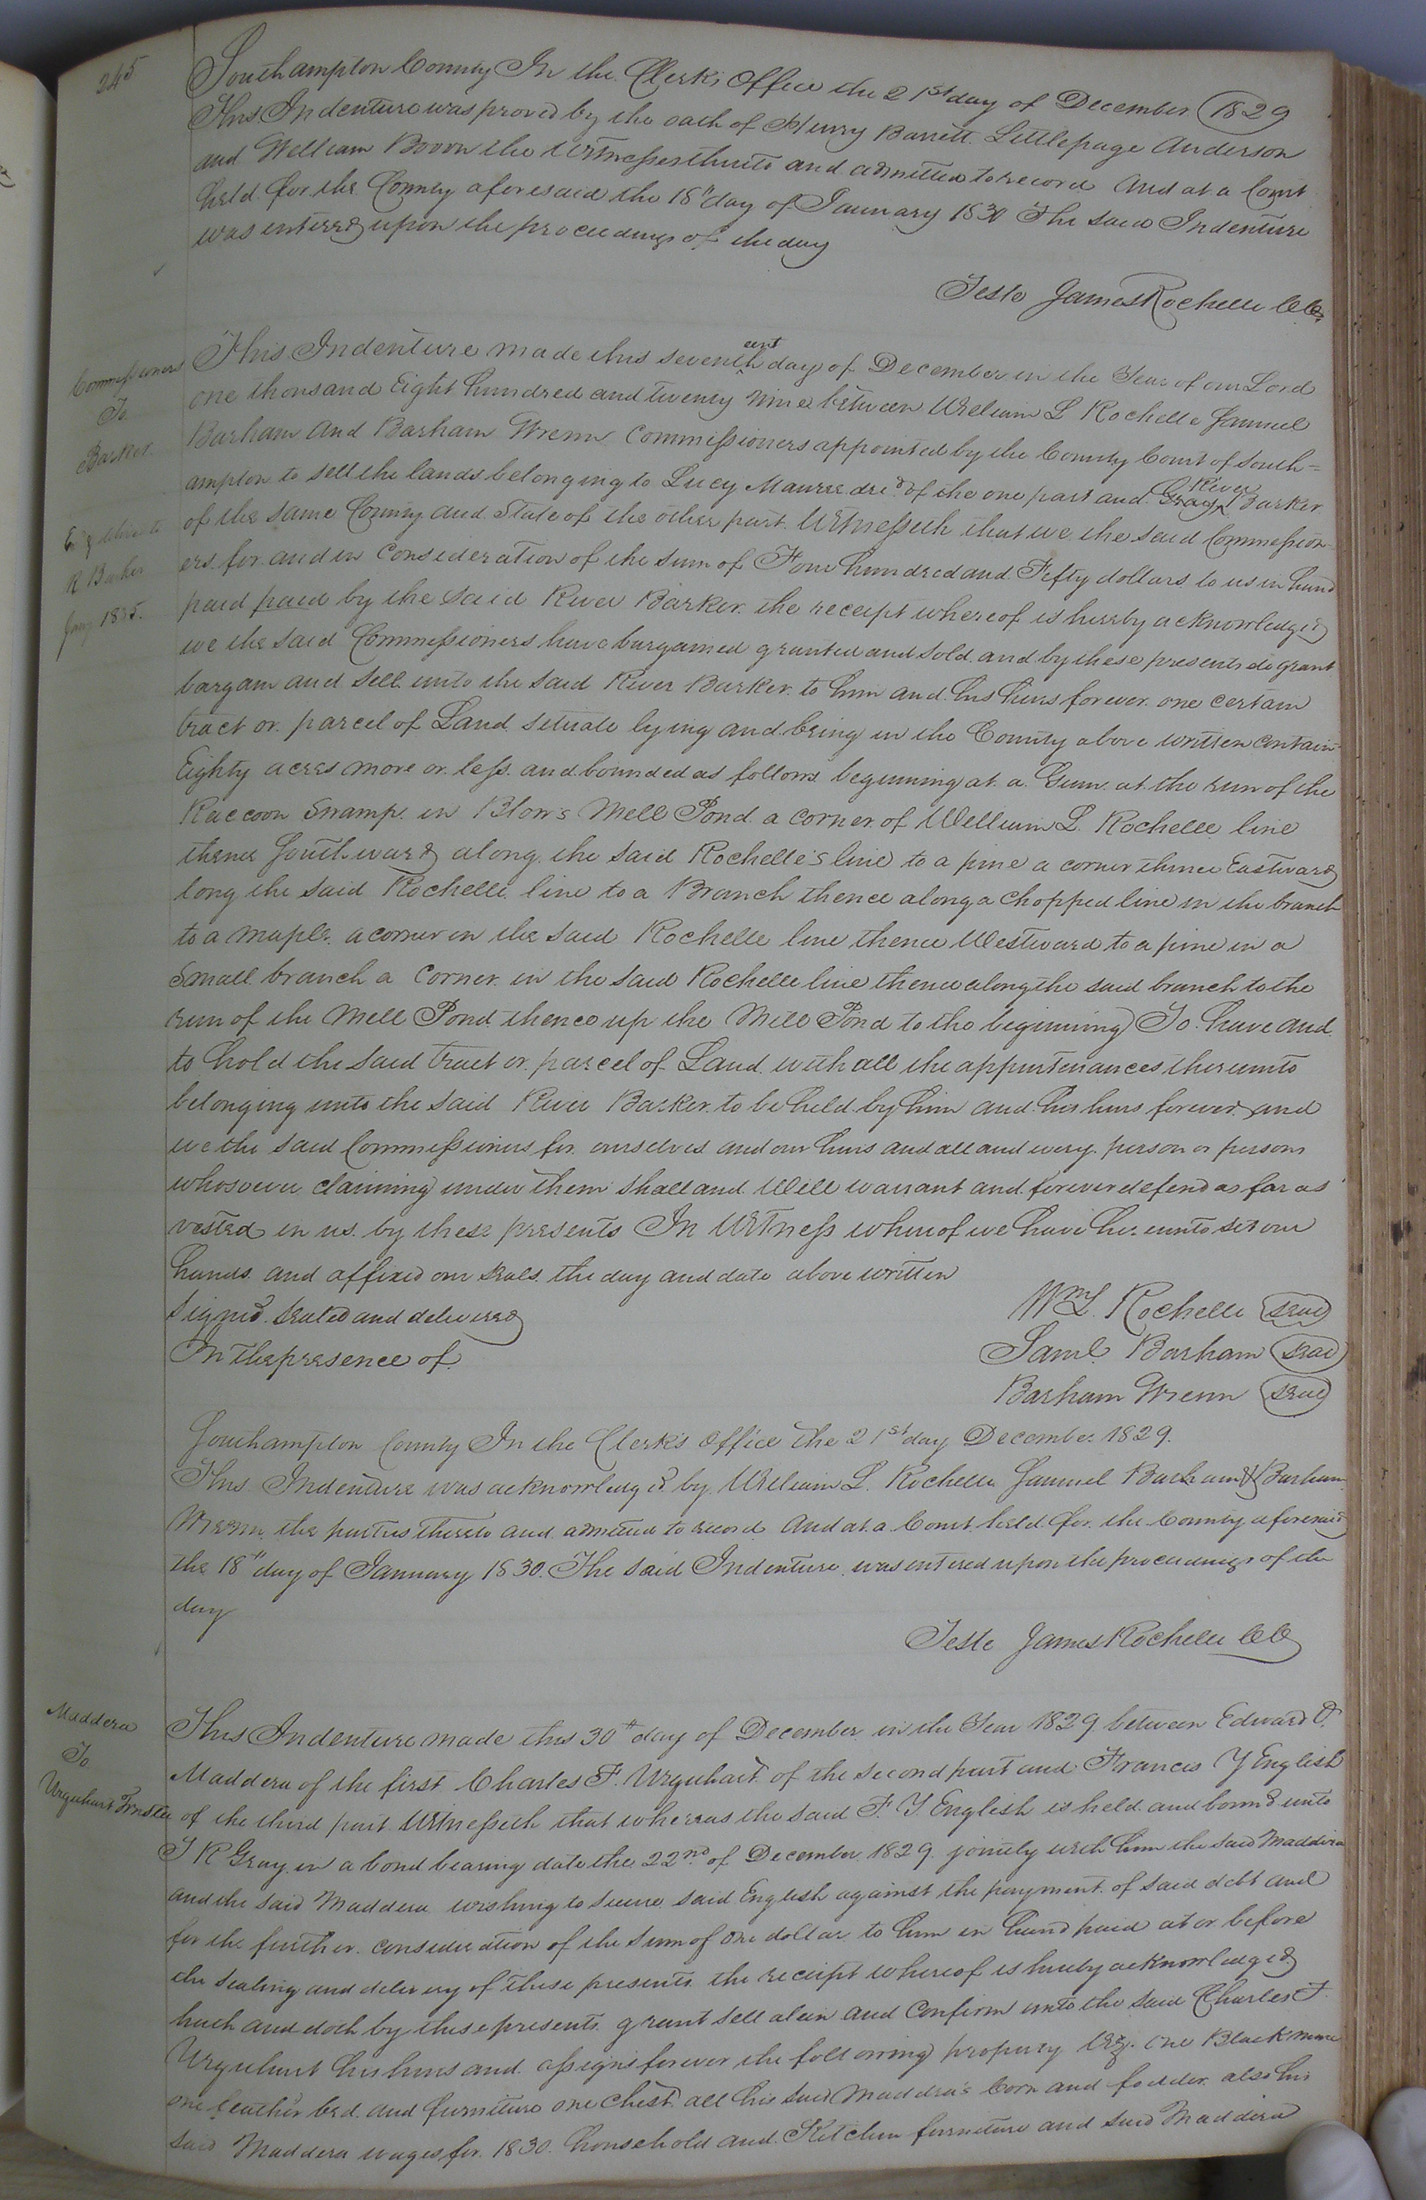 245
Southampton County In the Clerks Office the 21st day of December 1829
This Indenture was proved by the oath of Henry Barrett Littlepage Anderson
and William Bovon the Witnesses thereto and admitted to record And at a Court
held for the County aforesaid the 18th day of January 1830 The said Indenture
was entered upon the proceedings of the day
Teste James Rochelle CC
Commissioners
To
Barker
R Barker
Jany 1835.
This Indenture made this seventh day of December in the Year of our Lord
one thousand Eight hundred and twenty nine between William L Rochelle Samuel
Barham And Barham Wrenn Commissioners appointed by the County Court of South=
ampton to sell the lands belonging to Lucy Maurie decd of the one part and River Barker
of the same County and State of the other part Witnesseth that we the said Commission
ers for and in Consideration of the sum of Four hundred and Fifty dollars to us in hand
paid paid by the said River Barker the receipt whereof is hereby acknowledged
we the said Commissioners have bargained granted and sold and by these presents do grant
bargain and sell unto the said River Barker to him and his heirs forever one certain
tract or parcel of Land situate lying and being in the County above written contain
Eighty acres more or less and bounded as follows beginning at a Gum at the run of the
Raccoon Swamp in Blows Mill Pond a corner of William L. Rochelle line
thence Southward along the said Rochelle's line to a pine a corner thence Eastward
long the said Rochelle line to a Branch thence along a Chopped line in the branch
to a maple a corner in the said Rochelle line thence Westward to a pine in a
Small branch a Corner in the said Rochelle line thence along the said branch to the
run of the Mill Pond thence up the Mill Pond to the beginning To have and
to hold the said tract or parcel of Land with all the appurtenances thereunto
belonging unto the said River Barker to be held by him and his heirs forever and
we the said Commissioners for ourselves and our heirs and all and every person or persons
whosoever claiming under them shall and Will warrant and forever defend as far as
vested in us by these presents In Witness whereof we have hereunto set our
hands and affixed our seals the day and date above written
Signed Sealed and delivered
In the presence of
Wm L. Rochelle Seal
Saml. Barham Seal
Barham Wrenn Seal
Southampton County In the Clerk's Office the 21st day December 1829.
This Indenture was acknowledged by William L. Rochelle Samuel Barham & Barham
Wrenn the parties thereto and admitted to record And at a Court held for the County aforesaid
the 18th day of January 1830. The said Indenture was entered upon the proceedings of the
day
Teste James Rochelle CC
Maddera
To
Urquhart Trustee
This Indenture made this 30th day of December in the Year 1829 between Edward P.
Maddera of the first Charles F. Urquhart of the second part and Francis Y English
of the third part Witnesseth that whereas the said F. Y. English is held and bound unto
J R Gray in a bond bearing date the 22nd of December 1829 jointly with him the said Maddera
and the said Maddera wishing to secure said English against the payment of said debt and
for the further consideration of the sum of one dollar to him in hand paid at or before
the sealing and delivery of these presents the receipt whereof is hereby acknowledged
hath and doth by these presents grant sell alien and Confirm unto the said Charles F.
Urquhart his heirs and assigns forever the following property Viz. One Black mare
one feather bed and furniture one Chest all his said Maddera's Corn and fodder also his
said Maddera wages for 1830. household and Kitchen furniture and said Maddera